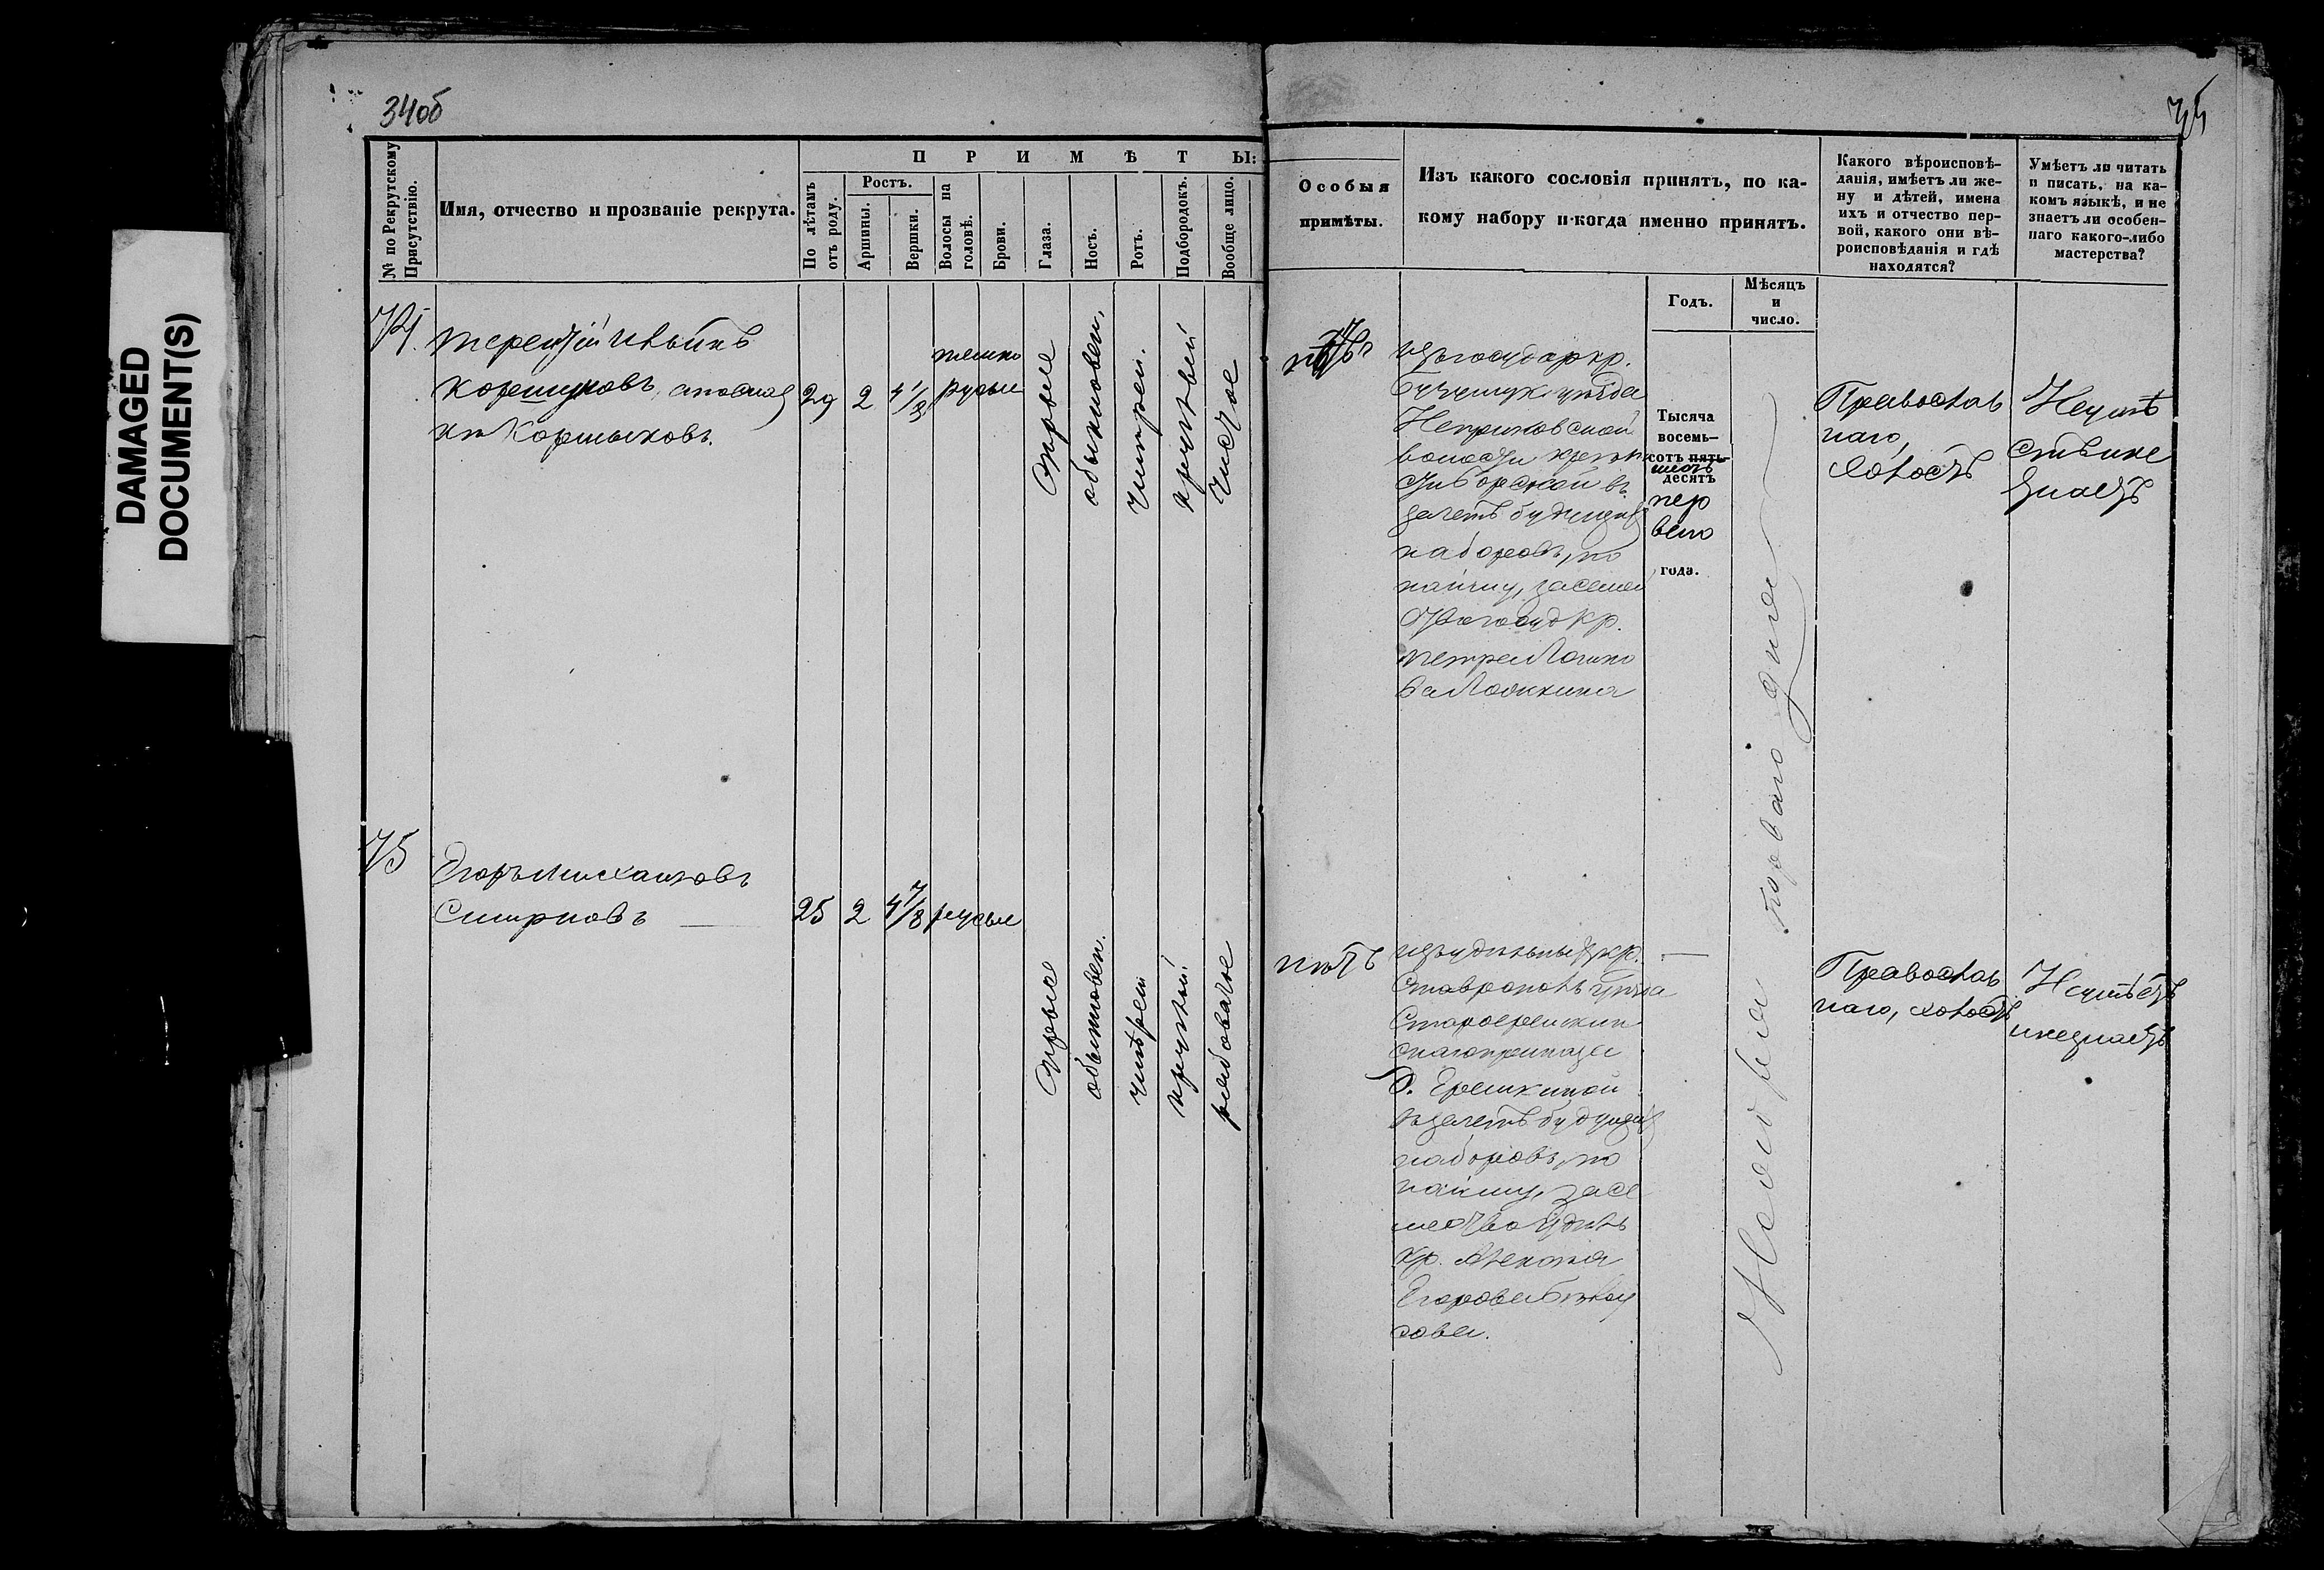 34об
35
DAMAGED
DOCUMENT(S)
№ по Рекрутскому
Присутствію.
Имя, отчество и прозваніе рекрута.
ПРИМѢТЫ:
По лѣтамъ
отъ роду.
Ростъ.
Аршины.
Вершки.
Волосы на
головѣ.
Брови.
Глаза.
Носъ.
Ротъ.
Подбородокъ.
Вообще лицо.
Особыя
примѣты.
Изъ какого сословія принятъ, по ка-
кому набору и когда именно принятъ.
Годъ.
Мѣсяцъ
и
число.
Какого вѣроисповѣ-
данія, имѣетъ ли же-
ну и дѣтей, имена
ихъ и отчество пер-
вой, какого они вѣ-
роисповѣданія и гдѣ
находятся?
Умѣетъ ли читать
и писать, на ка-
комъ языкѣ, и не
знаетъ ли особен-
наго какого-либо
мастерства?
74.
Терентій Ильинъ
Коршуновъ, а по сказ
кѣ Коршыковъ.
29
2
4 1/8
темно
русые
Сѣрые
обыкновен.
умѣрен.
круглый
чистое
нѣтъ
изъ государ. кр.
Бузулук. уѣзда
волости
зачетъ будущихъ
наборовъ, по
найму, за семей
ство госуд. кр.
Петра
Тысяча
восемь-
сотъ пять-
шесть
десятъ
пер
ваго
года.
Ноября перваго дня
Православ
наго,
холостъ
Неумѣ
етъ и не
знаетъ
75
Егоръ Михайловъ
Смирновъ
25
2
4 7/8
русые
Сѣрые
обыкновен.
умѣрен
круглый
рябоватое
нѣтъ
изъ удѣльныхъ кр.
Ставрополь. уѣзда
Старо
скаго приказа
д. Ерешкиной
въ зачетъ будущихъ
наборовъ, по
найму, за се
мейство удѣль
кр.
Егорова
сова.
Православ
наго, холостъ
Неумѣетъ
и не знаетъ